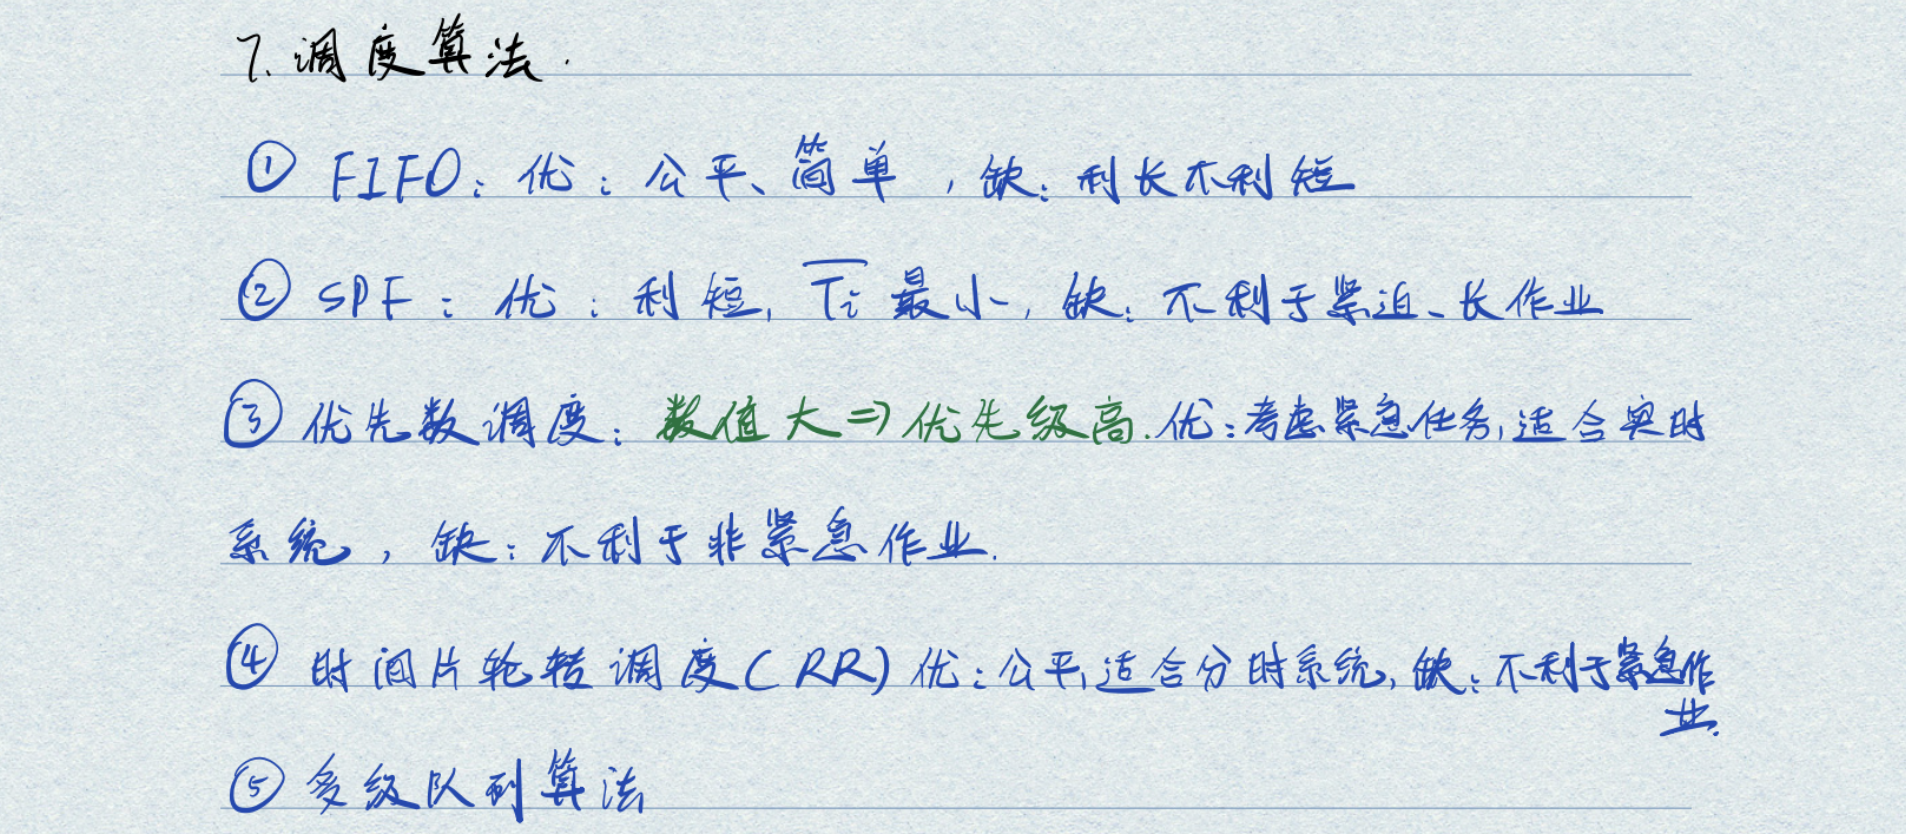 7. 调度算法.
① FIFO：优：公平、简单，缺：利长不利短
② SPF：优：利短, T̅i̅ 最小, 缺：不利于紧迫、长作业
③ 优先数调度：数值大⇒优先级高. 优：考虑紧急任务, 适合实时
系统，缺：不利于非紧急作业.
④ 时间片轮转调度(RR) 优：公平, 适合分时系统, 缺：不利于紧急作
业.
⑤ 多级队列算法